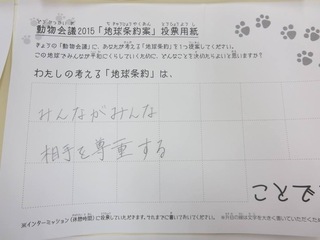 動物会議2015「地球条約案」投票用紙
きょうの「動物会議」に、あなたが考える「地球条約」を1つ提案してください。
この地球でみんなが平和にくらしていくために、どんなことを決めたらよいと思いますか?
わたしの考える「地球条約」は、
みんながみんな
相手を尊重する
※インターミッション(休憩時間)に投票していただきます。それまでに書いておいてください。